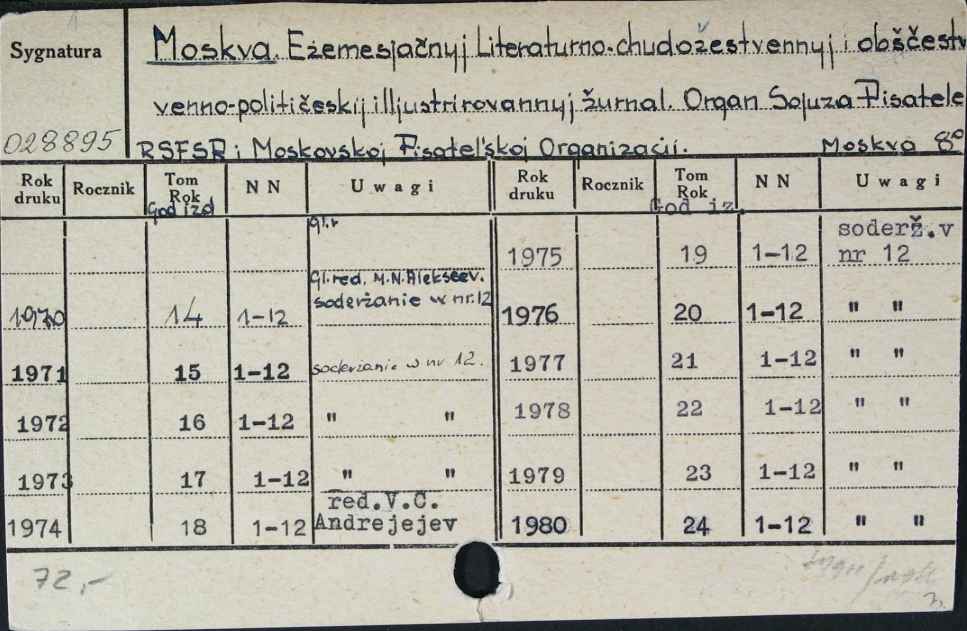 Sygnatura
Moskva. Ežemesjačnyj Literaturno-chudožestvennyj i obščestv
venno-političeskij illjustrirovannyj žurnal. Organ Sojuza Pisatele
028895
RSFSR i Moskovskoj Pisateľskoj Organizacii. Moskva 8°
Rok druku Rocznik Tom Rok NN Uwagi Rok druku Rocznik Tom Rok NN Uwagi
God izd God iz.
gl.r
1975 19 1-12 soderž.v nr 12
gl.red. M.N.Alekseev.
1970 14 1-12 soderżanie w nr.12 1976 20 1-12 " "
1971 15 1-12 soderżanie w nr 12. 1977 21 1-12 " "
1972 16 1-12 " " 1978 22 1-12 " "
1973 17 1-12 " " 1979 23 1-12 " "
red.V.C.
1974 18 1-12 Andrejejev 1980 24 1-12 " "
72,-